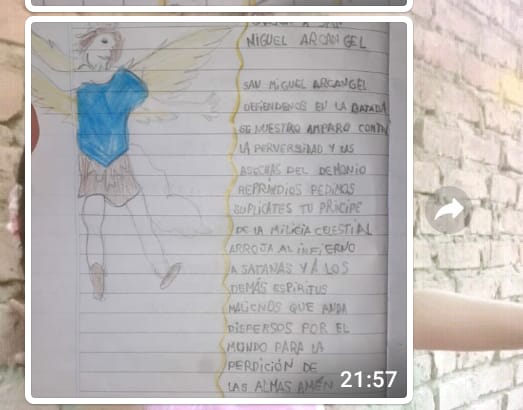 MIGUEL ARCANGEL
SAN MIGUEL ARCANGEL
DEFIENDENOS EN LA BATADA
SE NUESTRO AMPARO CONTRA
LA PERVERSIDAD Y LAS
ASECHAS DEL DEMONIO
REPRANDIOS PEDIMOS
SUPLICATES TU PRICIPE
DE LA MILICIA CELESTIAL
ARROJA AL INFIERNO
A SATANAS Y A LOS
DEMÁS ESPIRITUS
MALICNOS QUE ANDA
DISPERSOS POR EL
MUNDO PARA LA
PERDICIÓN DE
LAS ALMAS AMÉN
21:57